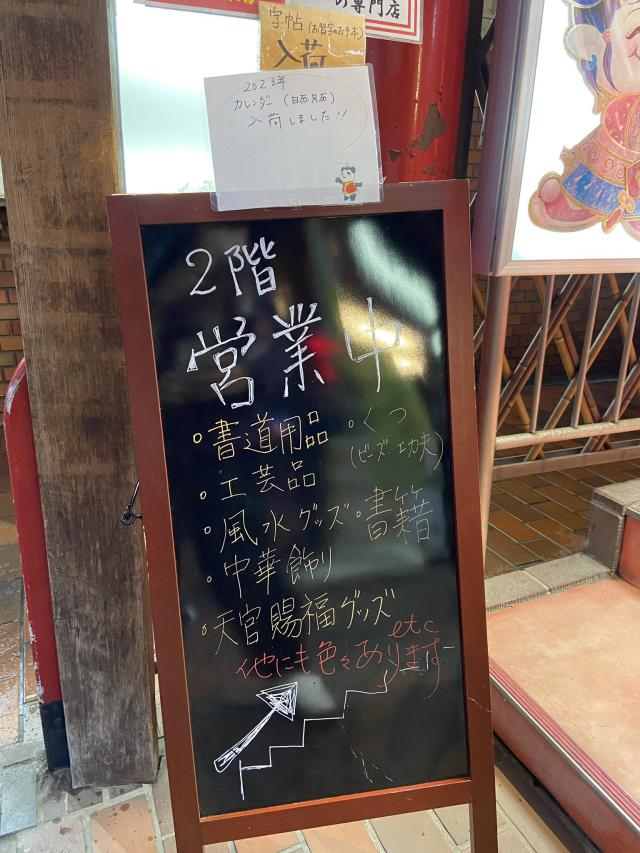 の専門店
字帖(お習字のお手本)
入荷
2023年
カレンダー(日历、月历)
入荷しました!!
2階
営業中
○書道用品
○くつ
(ビーズ・功夫)
○工芸品
○風水グッズ
○書籍
○中華飾り
○天官賜福グッズ
etc
他にも色々あります